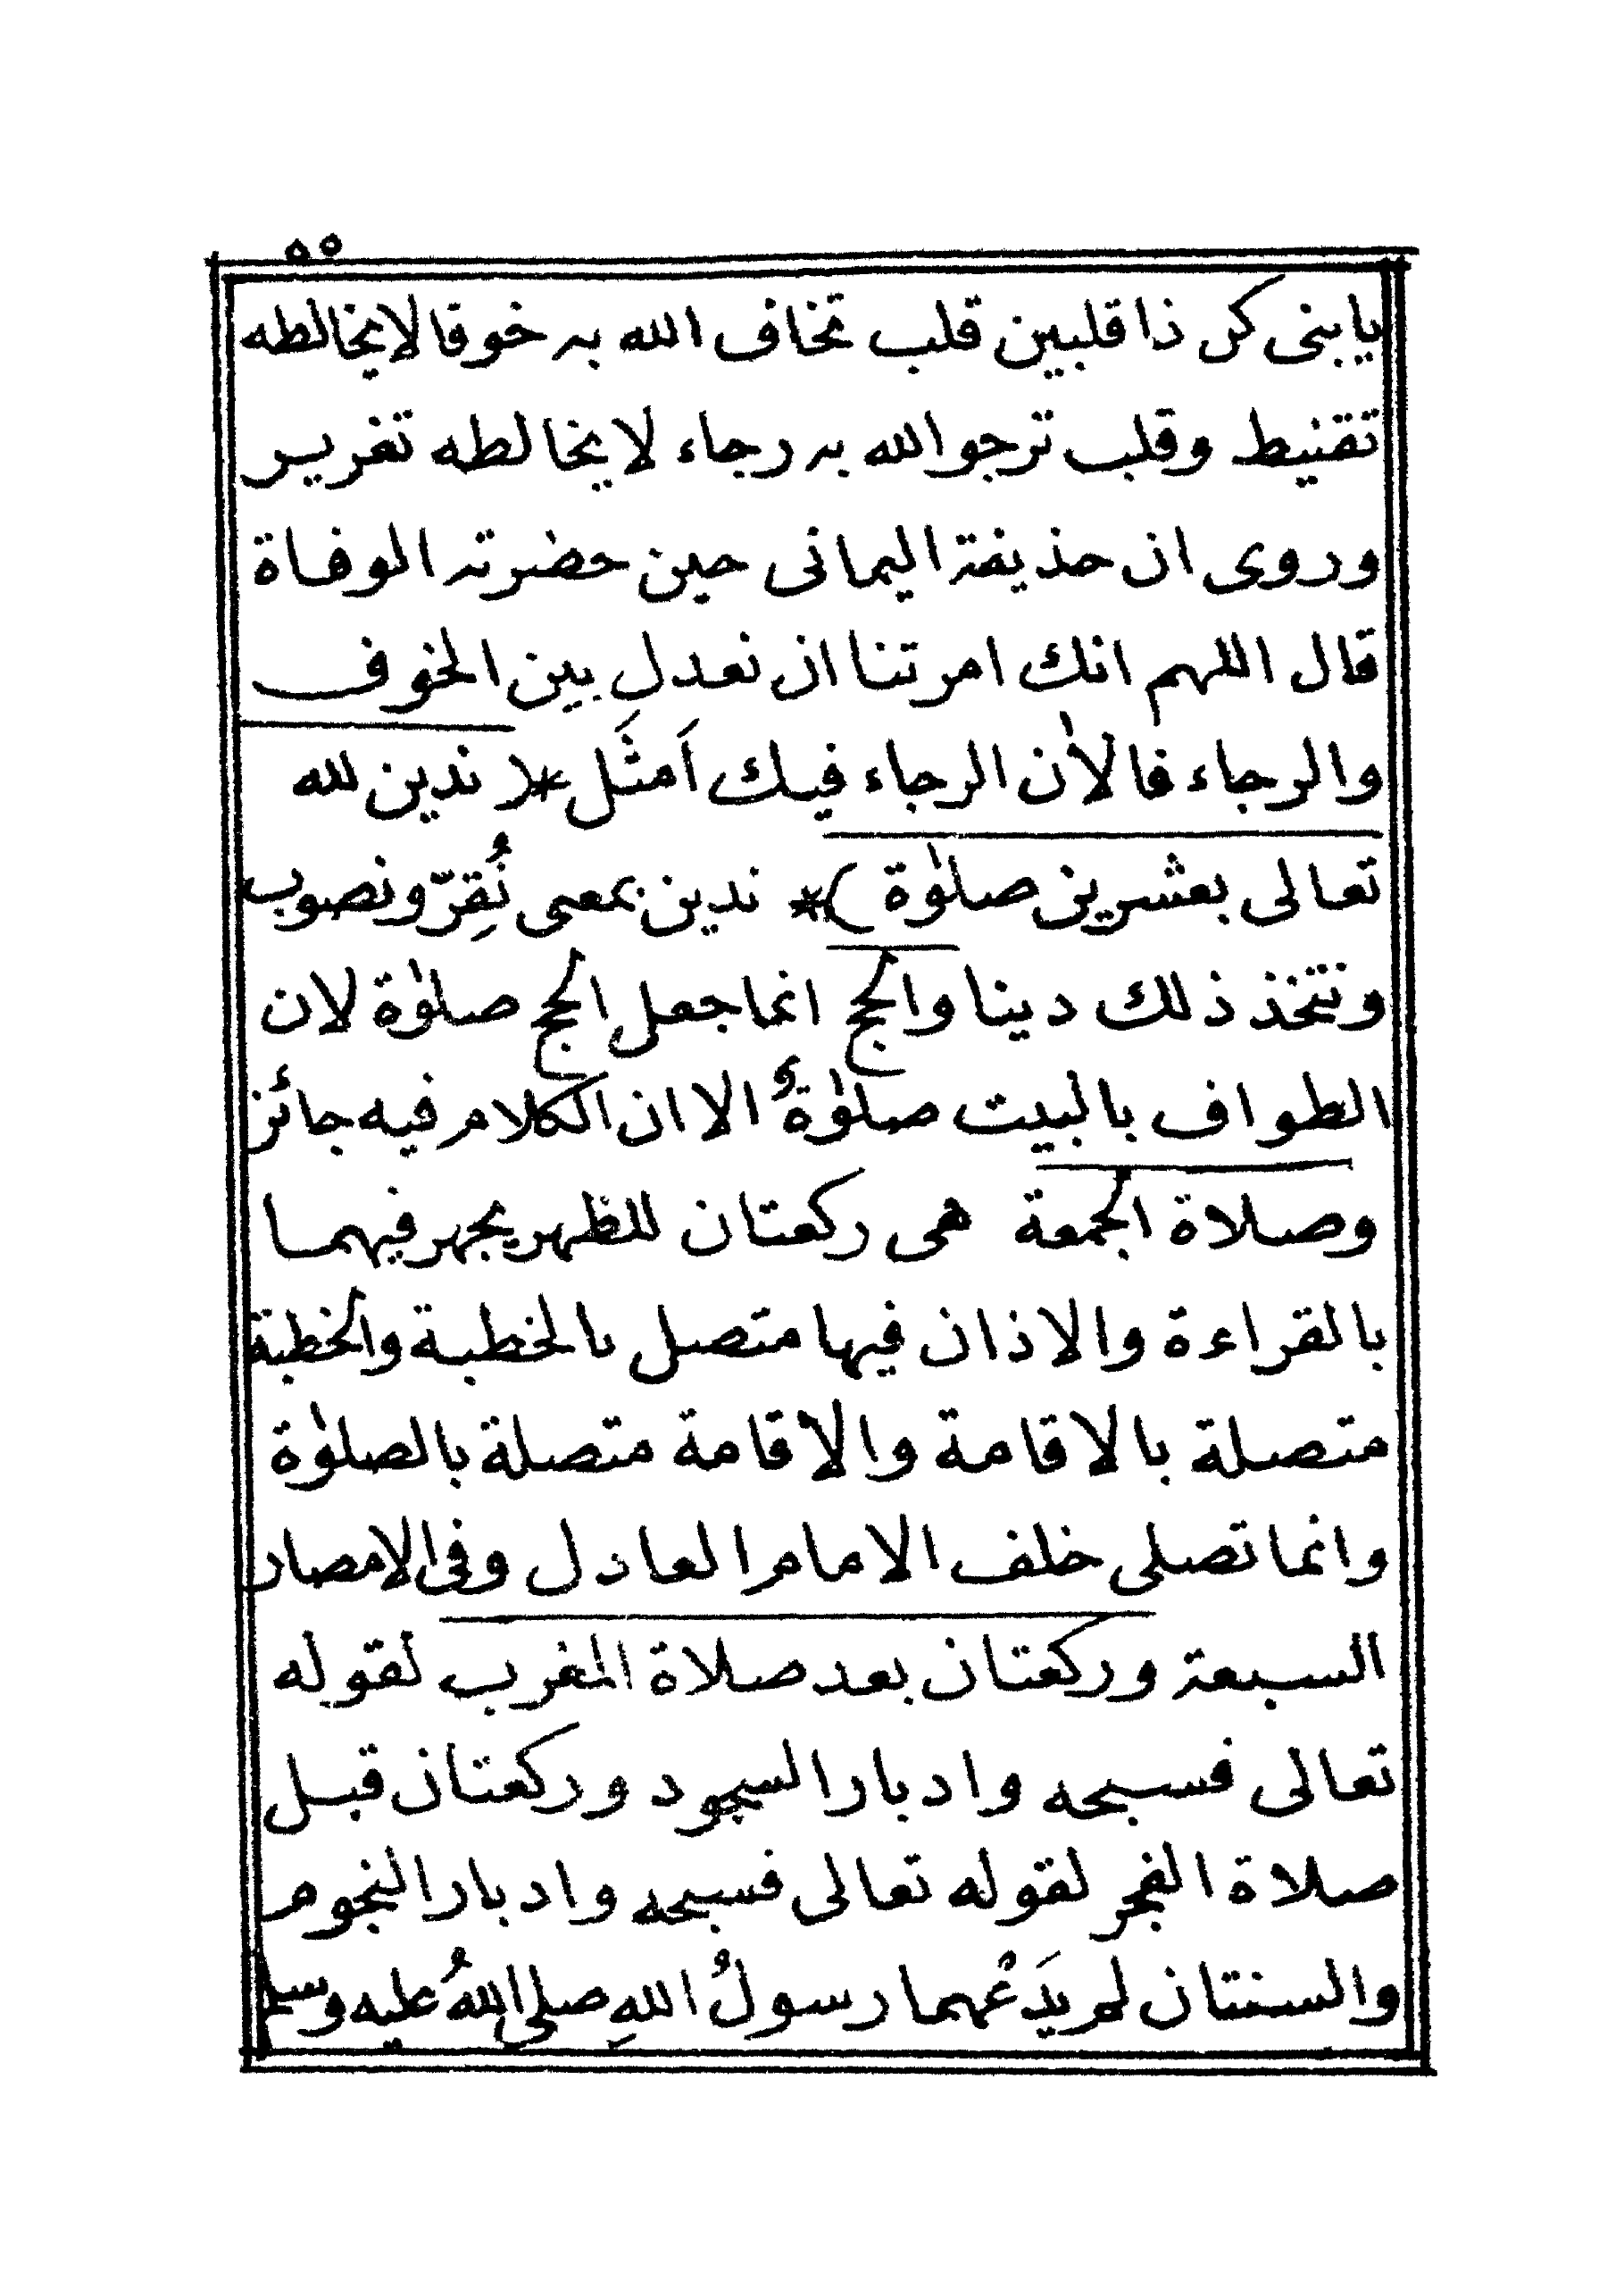 ٥٥
يا بنى كن ذا قلبين قلب تخاف الله به خوفا لا يخالطه
تقنيط وقلب ترجو الله به رجاء لا يخالطه تغرير
وروى ان حذيفة اليمانى حين حضرته الوفاة
قال اللهم انك امرتنا ان نعدل بين الخوف
والرجاء فالاٰن الرجاء فيك اَمثَل * ندين لله
تعالى بعشرين صلوٰة )* ندين بمعنى نُقِرّ ونصوب
ونتخذ ذلك دينا والحج انما جعل الحج صلوٰة لان
الطواف بالبيت صلوٰةٌ الا ان الكلام فيه جائز
وصلاة الجمعة هى ركعتان للظهر يجهر فيهما
بالقراءة والاذان فيها متصل بالخطبة والخطبة
متصلة بالاقامة والاقامة متصلة بالصلوٰة
وانما تصلى خلف الامام العادل وفى الامصار
السبعة وركعتان بعد صلاة المغرب لقوله
تعالى فسبحه وادبار السجود وركعتان قبل
صلاة الفجر لقوله تعالى فسبحه وادبار النجوم
والسنتان لم يدَعْهما رسولُ اللهِ صلى اللهُ عليه وسلم